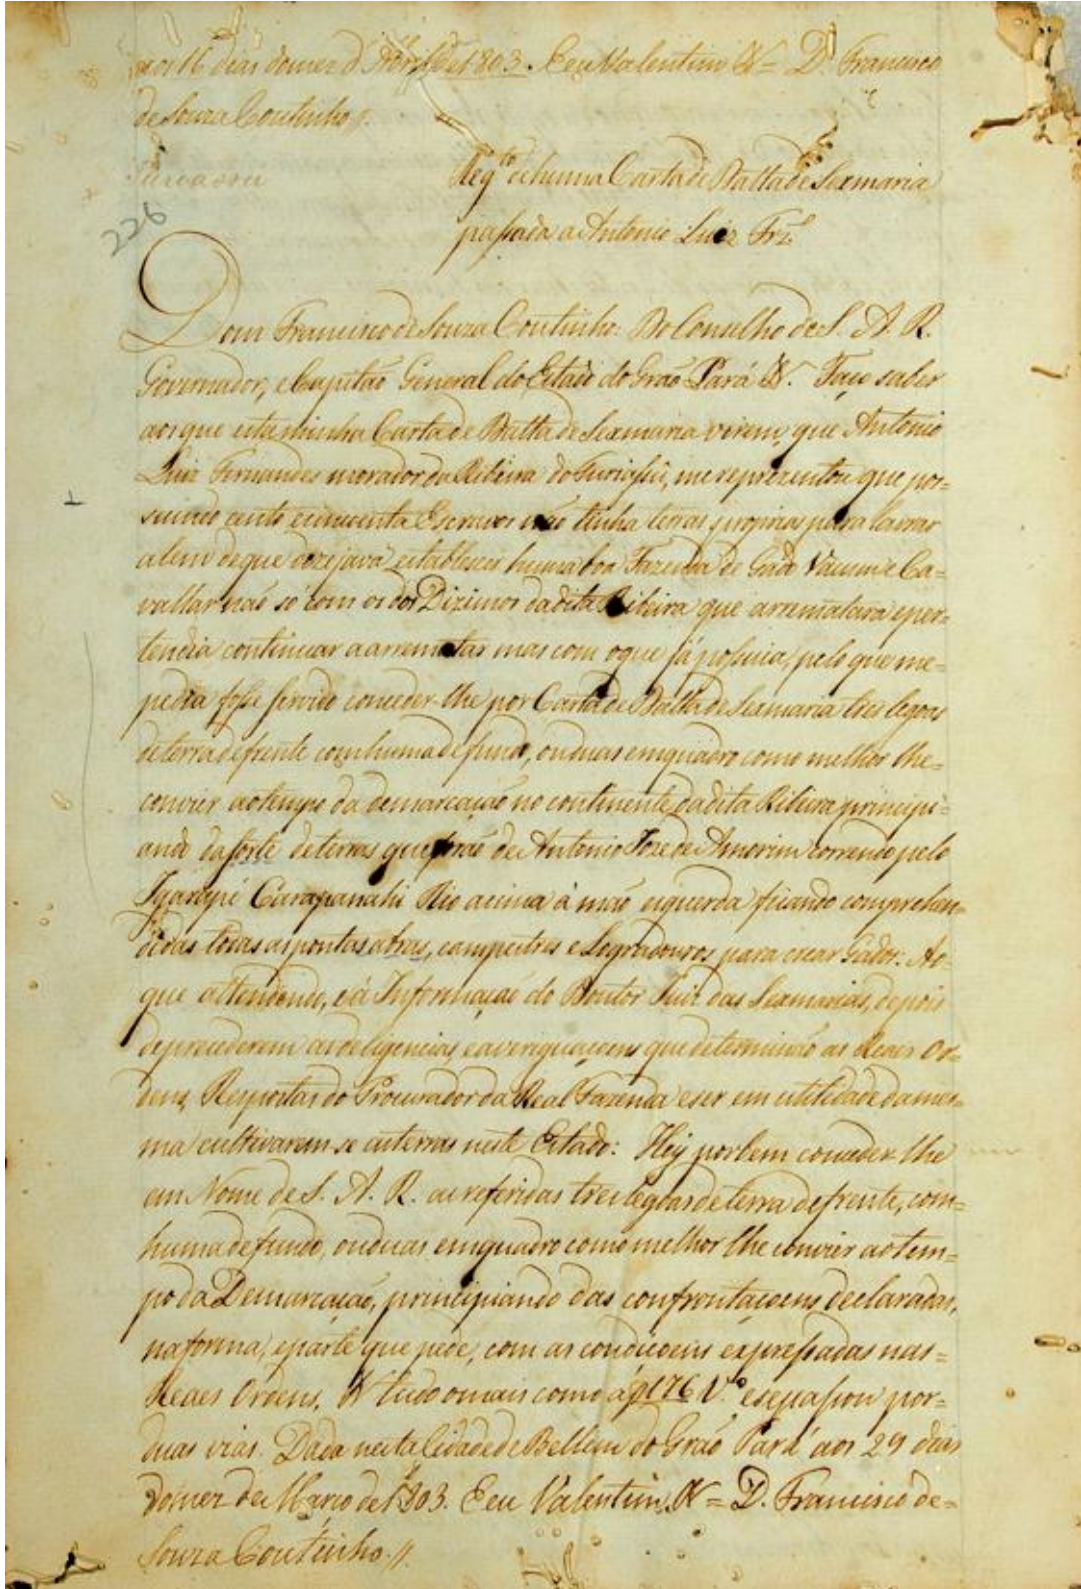 aos 16 dias do mez d Abril de 1803. E eu Valentim &= D. Francisco
de Souza Coutinho //.
Reg.to de huma Carta de Datta de Sexmaria
passada a Antonio Luiz Frz.
226
Dom Francisco de Souza Coutinho: Do Conselho de S. A. R.
Governador, e Capitão General do Estado do Grão Pará &. Faço saber
aos que esta minha Carta de Datta de Sexmaria virem, que Antonio
Luiz Fernandes morador da Ribeira do Turiassú, me reprezentou que pos=
suindo cento e cincoenta Escravos não tinha terras proprias para lavrar
alem de que dezejava estabelecer huma boa Fazenda de Gado Vacum e Ca=
vallar não só com os dos Dizimos da dita Ribeira que arrematara e per=
tendia continuar a arrematar mas com o que já possuia, pelo que me=
pedia fosse servido conceder-lhe por Carta de Datta de Sexmaria tres legoas
de terra de frente com huma de fundo, ou duas em quadro como melhor lhe=
convier ao tempo da demarcação no continente da dita Ribeira principi=
ando da sorte de terras que forão de Antonio Joze de Amorim correndo pelo
Igarapé Carapanahi Rio acima à mão esquerda ficando comprehen=
didas todas as pontas abras, campestres e Logradouros para crear Gados: Ao=
que attendendo, e á Informação do Doutor Juiz das Sexmarias, depois
de precederem as deligencias, e averiguaçoens que determinão as Reaes Or=
dens, Respostas do Procurador da Real Fazenda e ser em utilidade da mes=
ma cultivarem-se as terras neste Estado: Hey por bem conceder-lhe
em Nome de S. A. R. as referidas tres legoas de terra de frente, com=
huma de fundo, ou duas em quadro como melhor lhe convier ao tem=
po da Demarcação, principiando das confrontaçoens declaradas,
na forma, e parte que pede, com as condiçoens expressadas nas=
Reaes Ordens. & tudo o mais como á f 176 V.º e se passou por=
duas vias. Dada nesta Cidade de Bellem do Grão Pará aos 29 dias
do mez de Março de 1803. E eu Valentim &= D. Francisco de=
Souza Coutinho. //.